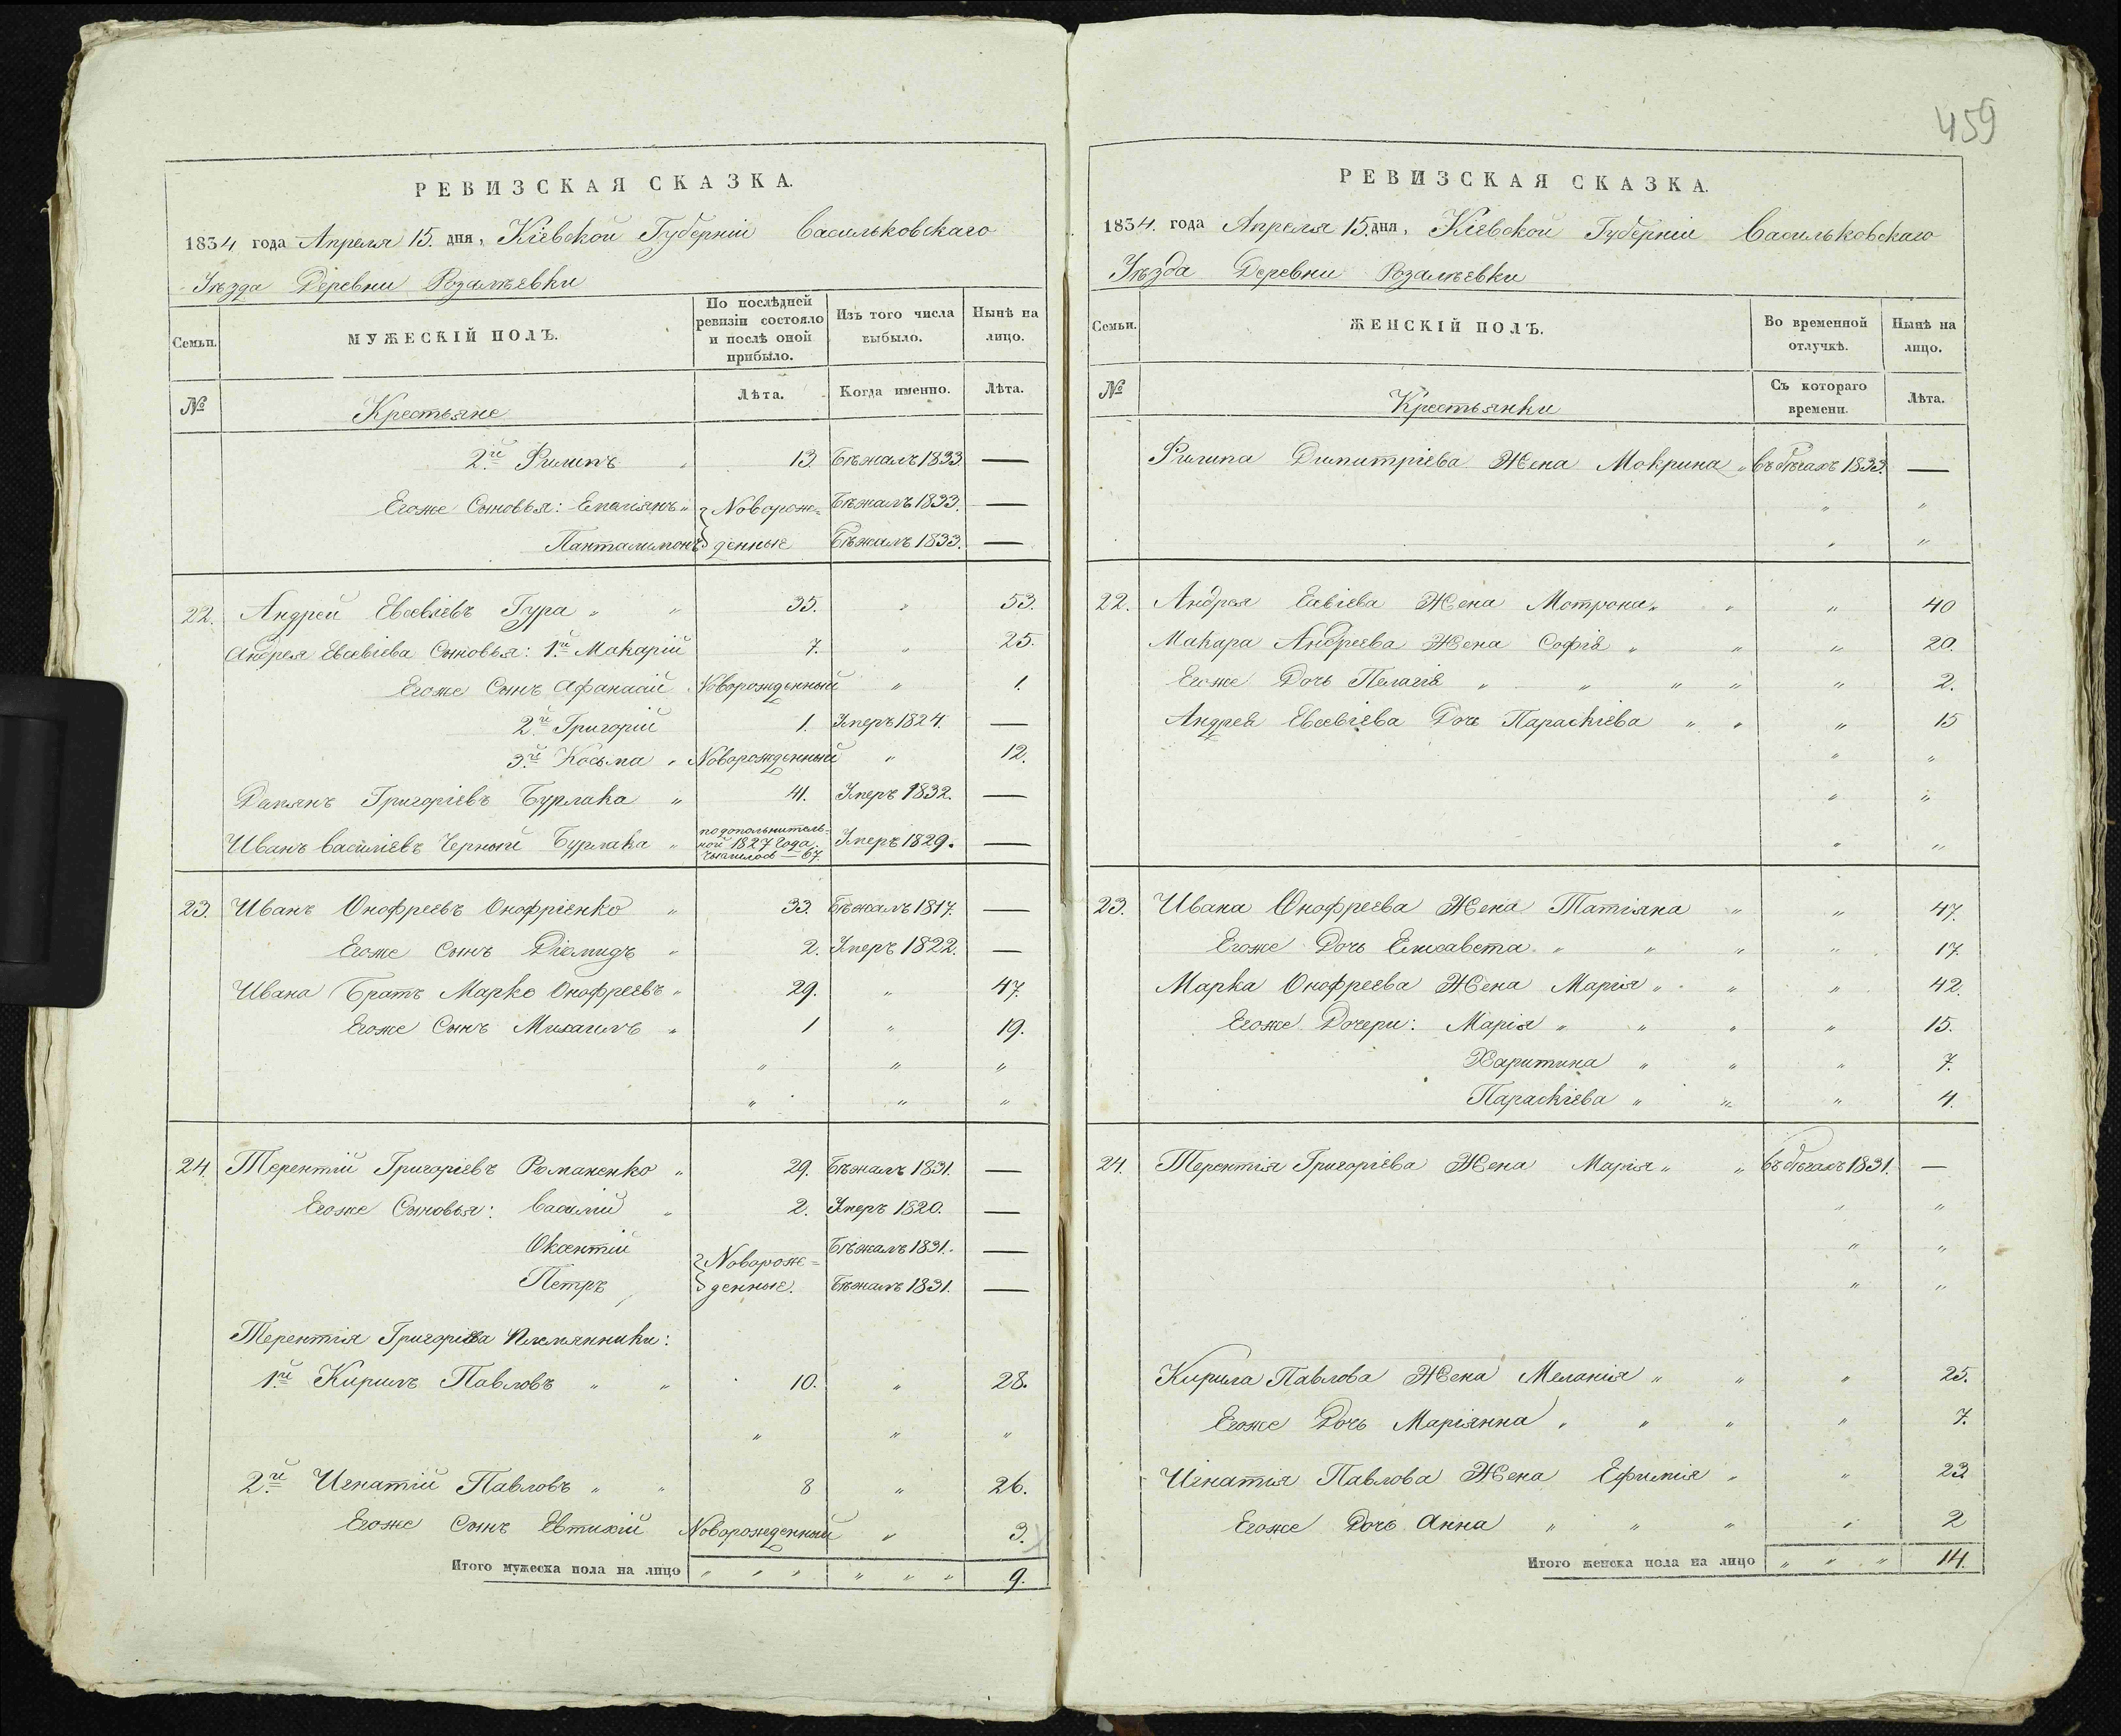 459
РЕВИЗСКАЯ СКАЗКА.
1834 года Апреля 15. дня, Кіевской Губерніи Васильковскаго
Уѣзда Деревни Розалѣевки
Семьи.
МУЖЕСКІЙ ПОЛЪ.
По послѣдней ревизіи состояло и послѣ оной прибыло.
Изъ того числа выбыло.
Нынѣ на лицо.
№
Крестьяне
Лѣта.
Когда именно.
Лѣта.
2.й Филипъ " 13. Бѣжалъ 1833. —
Егоже Сыновья: Емаліянъ " Новорож= Бѣжалъ 1833. —
Панталимонъ денные Бѣжалъ 1833. —
22. Андрей Евсевіевъ Гура " " 35. " 53.
Андрея Евсевіева Сыновья: 1.й Макарій 7. " 25.
Егоже Сынъ Афанасій Новорожденный " 1.
2.й Григорій 1. Умеръ 1824. —
3.й Косьма " Новорожденный " 12.
Дамянъ Григоріевъ Бурлака " 41. Умеръ 1832. —
Иванъ Васильевъ Черный Бурлака " подополнитель= ной 1827 года. числился — 67 Умеръ 1829. —
23. Иванъ Онофреевъ Онофріенко " 33. Бѣжалъ 1817. —
Егоже Сынъ Діомидъ " 2. Умеръ 1822. —
Ивана Братъ Марко Онофреевъ " 29. " 47.
Егоже Сынъ Михаилъ " 1 " 19.
" " "
" " "
24. Терентій Григоріевъ Романенко " 29. Бѣжалъ 1831. —
Егоже Сыновья: Василій " 2. Умеръ 1820. —
Оксентій Новорож= Бѣжалъ 1831. —
Петръ денные. Бѣжалъ 1831. —
Терентія Григоріева Племянники:
1.й Кирилъ Павловъ " " 10. " 28.
" " "
2.й Игнатій Павловъ " " 8 " 26.
Егоже Сынъ Евтихій Новорожденный " 3.
Итого мужеска пола на лицо " " " " " " 9.
РЕВИЗСКАЯ СКАЗКА.
1834. года Апреля 15. дня, Кіевской Губерніи Васильковскаго
Уѣзда Деревни Розалѣевки
Семьи.
ЖЕНСКІЙ ПОЛЪ.
Во временной отлучкѣ.
Нынѣ на лицо.
№
Крестьянки
Съ котораго времени.
Лѣта.
Филипа Димитріева Жена Мокрина " въ бѣгахъ 1833. —
" "
" "
22. Андрея Евсіева Жена Мотрона " " " 40
Макара Андреева Жена Софія " " " 20.
Егоже Дочь Пелагія " " " " " 2.
Андрея Евсевіева Дочь Параскіева " " " 15
" "
" "
" "
23. Ивана Онофреева Жена Татіяна " " 47.
Егоже Дочь Елисавета " " " " 17.
Марка Онофреева Жена Марія " " " 42.
Егоже Дочери: Марія " " " " 15.
Харитина " " " 7.
Параскіева " " " 4.
24. Терентія Григоріева Жена Марія " " въ бѣгахъ 1831. —
" "
" "
" "
Кирила Павлова Жена Меланія " " " 25.
Егоже Дочь Маріянна " " " " 7.
Игнатія Павлова Жена Ефимія " " 23
Егоже Дочь Анна " " " " 2
Итого женска пола на лицо " " " 14.